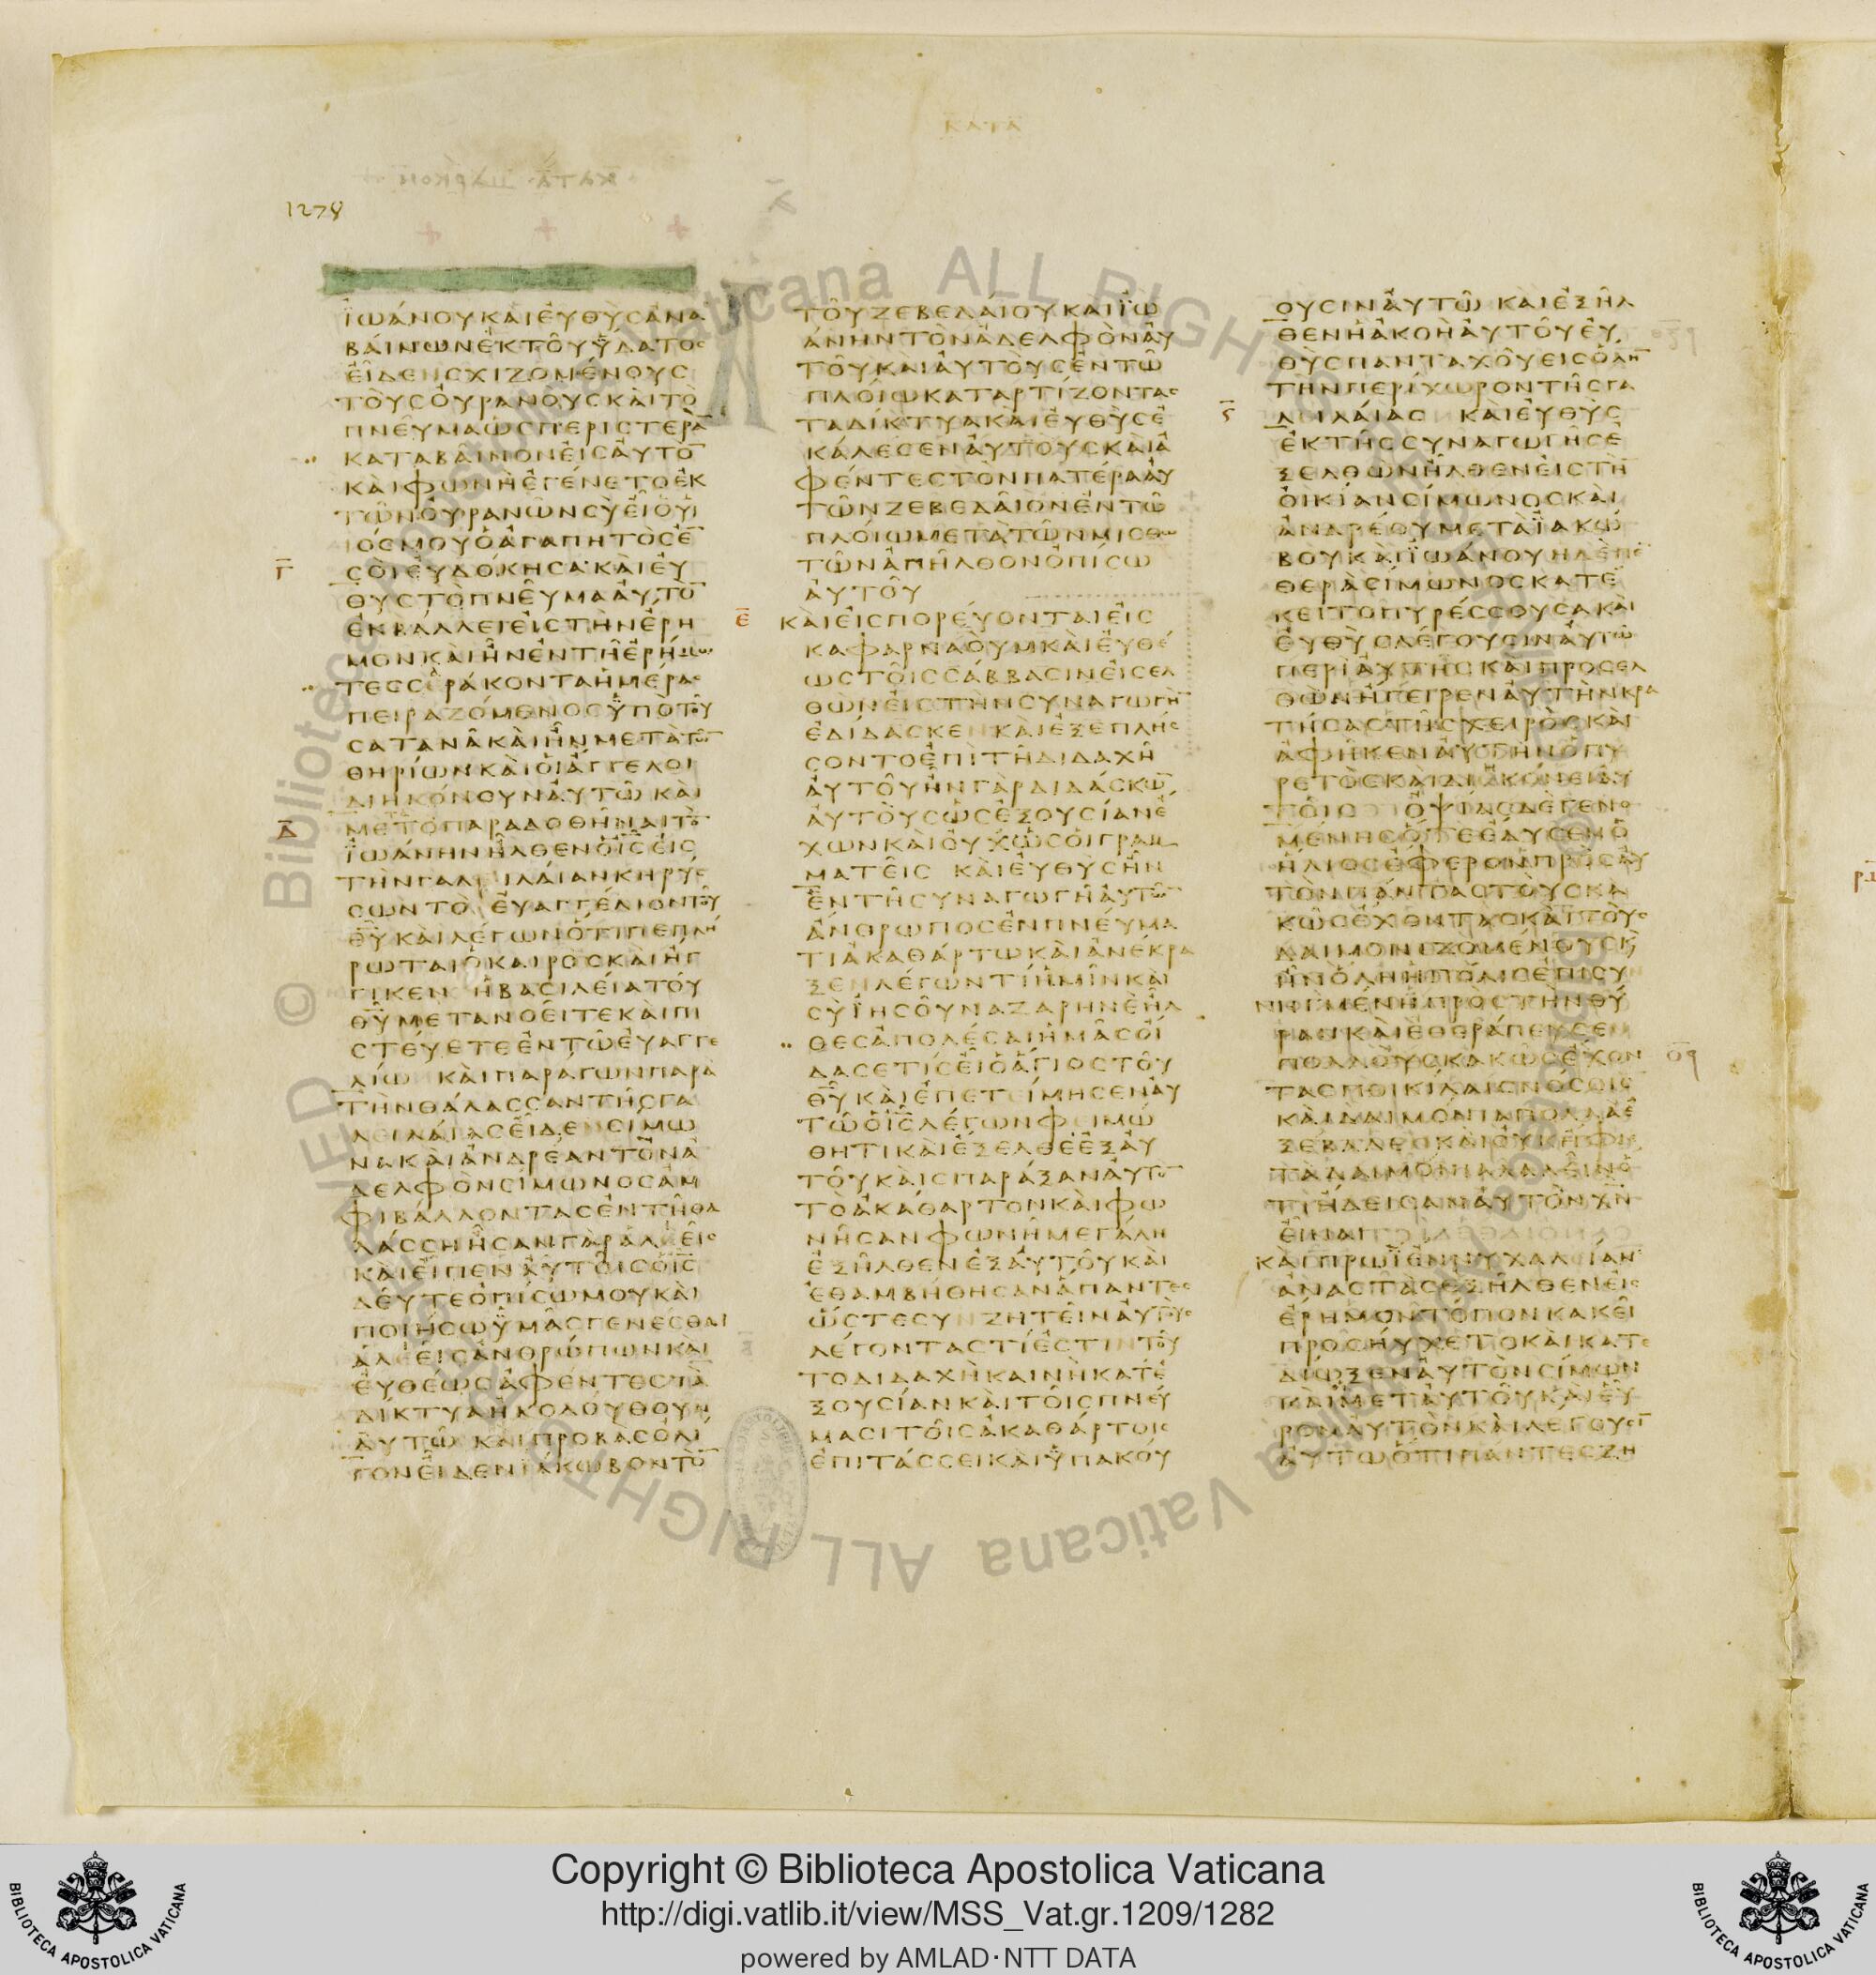 ΚΑΤΑ
ΚΑΤΑ ΜΑΡΚΟΝ
1278
ΪΩΑΝΟΥΚΑΙΕΥΘΥСΑΝΑ
ΒΑΙΝΩΝΕΚΤΟΥΫΔΑΤΟС
ΕΙΔΕΝСΧΙΖΟΜΕΝΟΥС
ΤΟΥСΟΥΡΑΝΟΥСΚΑΙΤΟ
ΠΝΕΥΜΑΩСΠΕΡΙСΤΕΡΑ̅
ΚΑΤΑΒΑΙΝΟΝΕΙСΑΥΤΟ̅
ΚΑΙΦΩΝΗΕΓΕΝΕΤΟΕΚ
ΤΩΝΟΥΡΑΝΩΝСΥΕΙΟΥΙ
ΙΟСΜΟΥΟΑΓΑΠΗΤΟСΕ̅
Γ̅ СΟΙΕΥΔΟΚΗСΑ·ΚΑΙΕΥ
ΘΥСΤΟΠΝΕΥΜΑΑΥΤΟ̅
ΕΚΒΑΛΛΕΙΕΙСΤΗΝΕΡΗ
ΜΟΝΚΑΙΗΝΕΝΤΗΕΡΗΜΩ
ΤΕССΕΡΑΚΟΝΤΑΗΜΕΡΑС
ΠΕΙΡΑΖΟΜΕΝΟСΫΠΟΤΟΥ
СΑΤΑΝΑΚΑΙΗΝΜΕΤΑΤΩ̅
ΘΗΡΙΩΝΚΑΙΟΙΑΓΓΕΛΟΙ
ΔΙΗΚΟΝΟΥΝΑΥΤΩ ΚΑΙ
Δ̅ ΜΕΤΟΠΑΡΑΔΟΘΗΝΑΙΤΟ̅
ΪΩΑΝΗΝΗΛΘΕΝΟΙ̅С̅ΕΙС
ΤΗΝΓΑΛΕΙΛΑΙΑΝΚΗΡΥС
СΩΝΤΟ ΕΥΑΓΓΕΛΙΟΝΤΟΥ
Θ̅Υ̅ΚΑΙΛΕΓΩΝΟΤΙΠΕΠΛΗ
ΡΩΤΑΙΟΚΑΙΡΟСΚΑΙΗΓ
ΓΙΚΕΝ ΗΒΑСΙΛΕΙΑΤΟΥ
Θ̅Υ̅ΜΕΤΑΝΟΕΙΤΕΚΑΙΠΙ
СΤΕΥΕΤΕΕΝΤΩΕΥΑΓΓΕ
ΛΙΩ ΚΑΙΠΑΡΑΓΩΝΠΑΡΑ
ΤΗΝΘΑΛΑССΑΝΤΗСΓΑ
ΛΕΙΛΑΙΑСΕΙΔΕΝСΙΜΩ
ΝΑΚΑΙΑΝΔΡΕΑΝΤΟΝΑ
ΔΕΛΦΟΝСΙΜΩΝΟСΑΜ
ΦΙΒΑΛΛΟΝΤΑСΕΝΤΗΘΑ
ΛΑССΗΗСΑΝΓΑΡΑΛΕΕΙС
ΚΑΙΕΙΠΕΝΑΥΤΟΙСΟΙ̅С̅
ΔΕΥΤΕΟΠΙСΩΜΟΥΚΑΙ
ΠΟΙΗСΩΫΜΑСΓΕΝΕСΘΑΙ
ΑΛΕΕΙСΑΝΘΡΩΠΩΝΚΑΙ
ΕΥΘΕΩСΑΦΕΝΤΕСΤΑ
ΔΙΚΤΥΑΗΚΟΛΟΥΘΟΥΝ
ΑΥΤΩ ΚΑΙΠΡΟΒΑСΟΛΙ
ΓΟΝΕΙΔΕΝΪΑΚΩΒΟΝΤΟ̅
ΤΟΥΖΕΒΕΔΑΙΟΥΚΑΙΪΩ
ΑΝΗΝΤΟΝΑΔΕΛΦΟΝΑΥ
ΤΟΥΚΑΙΑΥΤΟΥСΕΝΤΩ
ΠΛΟΙΩΚΑΤΑΡΤΙΖΟΝΤΑС
ΤΑΔΙΚΤΥΑΚΑΙΕΥΘΥСΕ
ΚΑΛΕСΕΝΑΥΤΟΥСΚΑΙΑ
ΦΕΝΤΕСΤΟΝΠΑΤΕΡΑΑΥ
ΤΩΝΖΕΒΕΔΑΙΟΝΕΝΤΩ
ΠΛΟΙΩΜΕΤΑΤΩΝΜΙСΘΩ
ΤΩΝΑΠΗΛΘΟΝΟΠΙСΩ
ΑΥΤΟΥ
Ε̅ ΚΑΙΕΙСΠΟΡΕΥΟΝΤΑΙΕΙС
ΚΑΦΑΡΝΑΟΥΜΚΑΙΕΥΘΕ
ΩСΤΟΙССΑΒΒΑСΙΝΕΙСΕΛ
ΘΩΝΕΙСΤΗΝСΥΝΑΓΩΓΗ̅
ΕΔΙΔΑСΚΕΝΚΑΙΕΞΕΠΛΗС
СΟΝΤΟΕΠΙΤΗΔΙΔΑΧΗ
ΑΥΤΟΥΗΝΓΑΡΔΙΔΑСΚΩ̅
ΑΥΤΟΥСΩСΕΞΟΥСΙΑΝΕ
ΧΩΝΚΑΙΟΥΧΩСΟΙΓΡΑΜ
ΜΑΤΕΙС ΚΑΙΕΥΘΥСΗΝ
ΕΝΤΗСΥΝΑΓΩΓΗΑΥΤΩ̅
ΑΝΘΡΩΠΟСΕΝΠΝΕΥΜΑ
ΤΙΑΚΑΘΑΡΤΩΚΑΙΑΝΕΚΡΑ
ΞΕΝΛΕΓΩΝΤΙΗΜΙΝΚΑΙ
СΥΪΗСΟΥΝΑΖΑΡΗΝΕΗΛ
ΘΕСΑΠΟΛΕСΑΙΗΜΑСΟΙ
ΔΑСΕΤΙСΕΙΟΑΓΙΟСΤΟΥ
Θ̅Υ̅ΚΑΙΕΠΕΤΕΙΜΗСΕΝΑΥ
ΤΩΟΙ̅С̅ΛΕΓΩΝΦΕΙΜΩ
ΘΗΤΙΚΑΙΕΞΕΛΘΕΕΞΑΥ
ΤΟΥΚΑΙСΠΑΡΑΞΑΝΑΥΤΟ̅
ΤΟΑΚΑΘΑΡΤΟΝΚΑΙΦΩ
ΝΗСΑΝΦΩΝΗΜΕΓΑΛΗ
ΕΞΗΛΘΕΝΕΞΑΥΤΟΥΚΑΙ
ΕΘΑΜΒΗΘΗСΑΝΑΠΑΝΤΕС
ΩСΤΕСΥΝΖΗΤΕΙΝΑΥΤΟΥС
ΛΕΓΟΝΤΑСΤΙΕСΤΙΝΤΟΥ
ΤΟΔΙΔΑΧΗΚΑΙΝΗΚΑΤΕ
ΞΟΥСΙΑΝΚΑΙΤΟΙСΠΝΕΥ
ΜΑСΙΤΟΙСΑΚΑΘΑΡΤΟΙС
ΕΠΙΤΑССΕΙΚΑΙΫΠΑΚΟΥ
ΟΥСΙΝΑΥΤΩ ΚΑΙΕΞΗΛ
ΘΕΝΗΑΚΟΗΑΥΤΟΥΕΥ
ΘΥСΠΑΝΤΑΧΟΥΕΙСΟΛΗ̅
ΤΗΝΠΕΡΙΧΩΡΟΝΤΗСΓΑ
ϛ̅ ΛΕΙΛΑΙΑС ΚΑΙΕΥΘΥС
ΕΚΤΗССΥΝΑΓΩΓΗСΕ
ΞΕΛΘΩΝΗΛΘΕΝΕΙСΤΗ̅
ΟΙΚΙΑΝСΙΜΩΝΟСΚΑΙ
ΑΝΔΡΕΟΥΜΕΤΑΪΑΚΩ
ΒΟΥΚΑΙΪΩΑΝΟΥΗΔΕΠΕ
ΘΕΡΑСΙΜΩΝΟСΚΑΤΕ
ΚΕΙΤΟΠΥΡΕССΟΥСΑΚΑΙ
ΕΥΘΥСΛΕΓΟΥСΙΝΑΥΤΩ
ΠΕΡΙΑΥΤΗСΚΑΙΠΡΟСΕΛ
ΘΩΝΗΓΕΙΡΕΝΑΥΤΗΝΚΡΑ
ΤΗСΑСΤΗСΧΕΙΡΟСΚΑΙ
ΑΦΗΚΕΝΑΥΤΗΝΟΠΥ
ΡΕΤΟСΚΑΙΔΙΗΚΟΝΕΙΑΥ
ΤΟΙС ΟΨΙΑСΔΕΓΕΝΟ
ΜΕΝΗСΟΤΕΕΔΥСΕΝΟ
ΗΛΙΟСΕΦΕΡΟΝΠΡΟСΑΥ
ΤΟΝΠΑΝΤΑСΤΟΥСΚΑ
ΚΩСΕΧΟΝΤΑСΚΑΙΤΟΥС
ΔΑΙΜΟΝΙΖΟΜΕΝΟΥСΚ
ΗΝΟΛΗΗΠΟΛΙСΕΠΙСΥ
ΝΗΓΜΕΝΗΠΡΟСΤΗΝΘΥ
ΡΑΝΚΑΙΕΘΕΡΑΠΕΥСΕΝ
ΠΟΛΛΟΥСΚΑΚΩСΕΧΟΝ
ΤΑСΠΟΙΚΙΛΑΙСΝΟСΟΙС
ΚΑΙΔΑΙΜΟΝΙΑΠΟΛΛΑΕ
ΞΕΒΑΛΕΝΚΑΙΟΥΚΗΦΙΕ
ΤΑΔΑΙΜΟΝΙΑΛΑΛΕΙΝΟ
ΤΙΗΔΕΙСΑΝΑΥΤΟΝΧ̅Ν̅
ΕΙΝΑΙ
ΚΑΙΠΡΩΪΕΝΝΥΧΑΛΕΙΑΝ
ΑΝΑСΤΑСΕΞΗΛΘΕΝΕΙС
ΕΡΗΜΟΝΤΟΠΟΝΚΑΚΕΙ
ΠΡΟСΗΥΧΕΤΟΚΑΙΚΑΤΕ
ΔΙΩΞΕΝΑΥΤΟΝСΙΜΩΝ
ΚΑΙΟΙΜΕΤΑΥΤΟΥΚΑΙΕΥ
ΡΟΝΑΥΤΟΝΚΑΙΛΕΓΟΥСΙ̅
ΑΥΤΩΟΤΙΠΑΝΤΕСΖΗ
Copyright © Biblioteca Apostolica Vaticana
http://digi.vatlib.it/view/MSS_Vat.gr.1209/1282
powered by AMLAD·NTT DATA
BIBLIOTECA APOSTOLICA VATICANA
BIBLIOTECA APOSTOLICA VATICANA